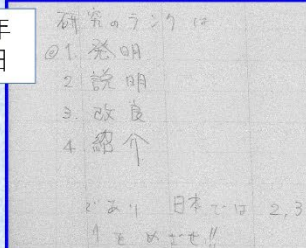 年
日
研究のランクは
◎1. 発明
2. 説明
3. 改良
4. 紹介
であり 日本では 2,3
1をめざせ!!